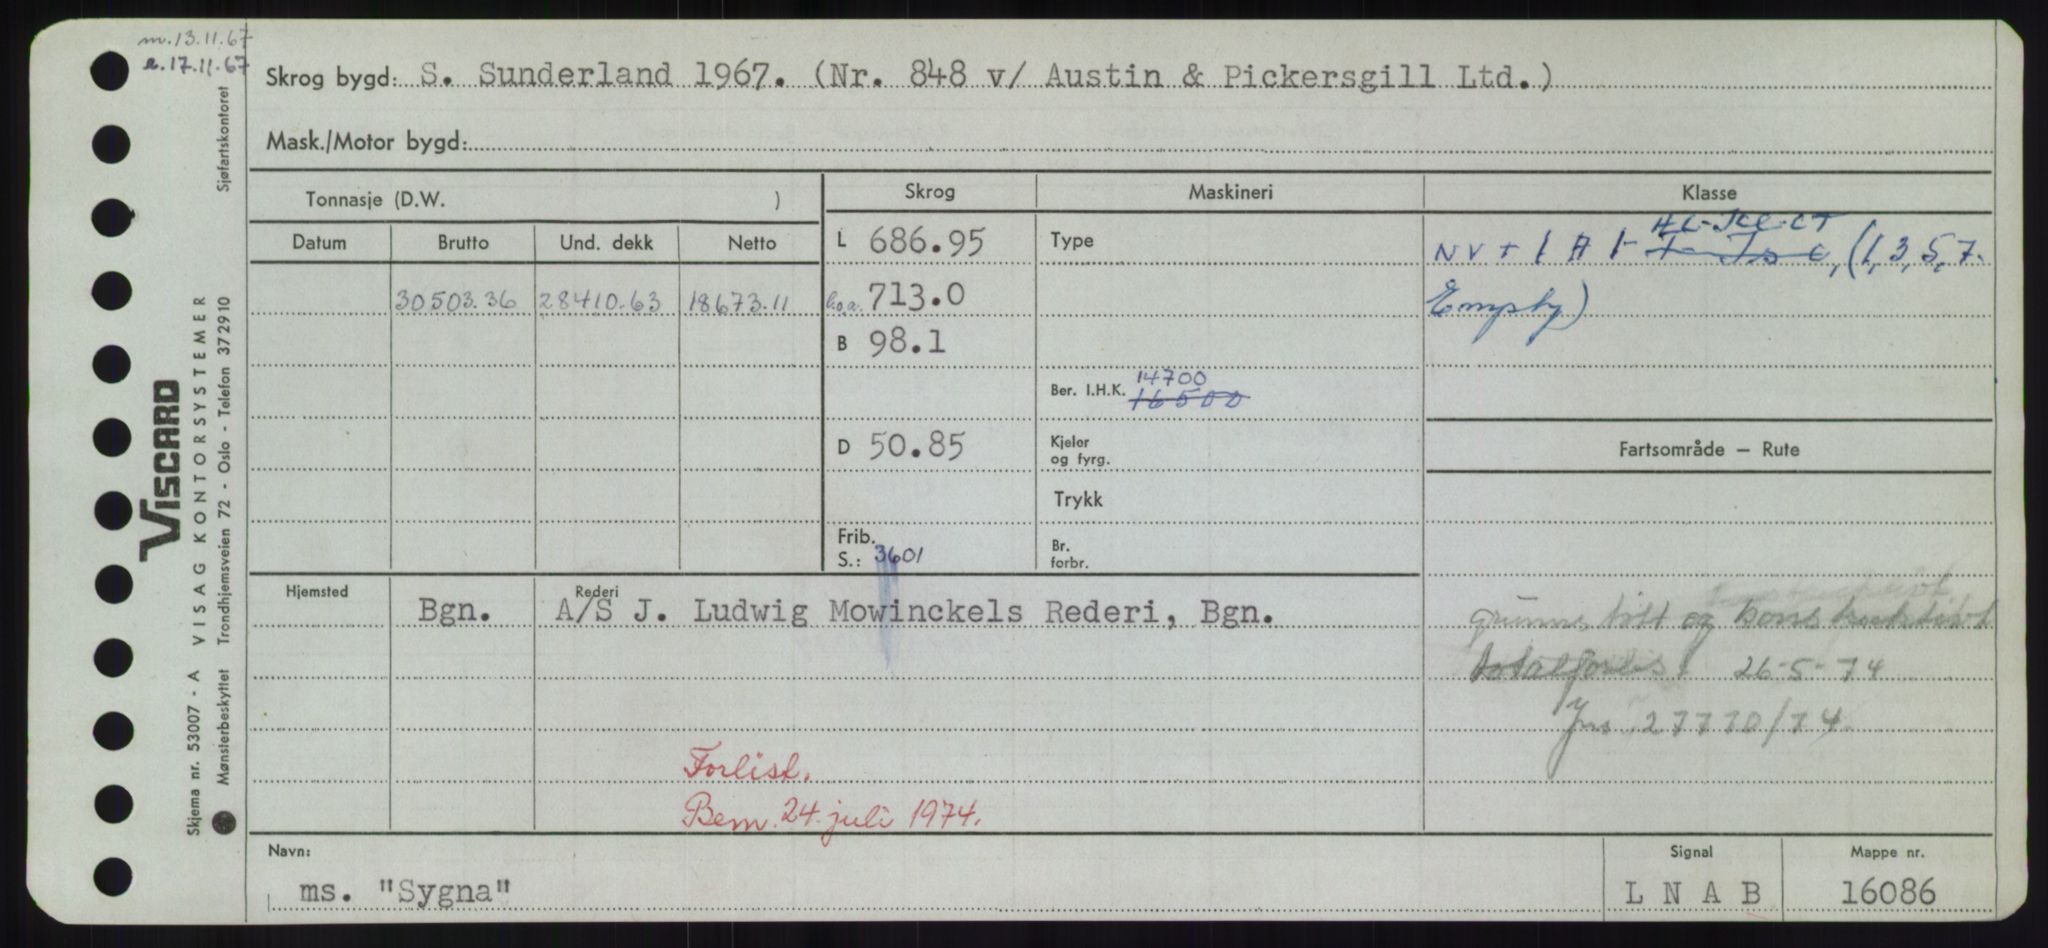 m. 13.11.67
e. 17.11.67
Skrog bygd: S. Sunderland 1967. (Nr. 848 v/ Austin & Pickersgill Ltd.)
Mask./Motor bygd:
Sjøfartskontoret
VISCARD
VISAG KONTORSYSTEMER
Skjema nr. 53007 - A
Mønsterbeskyttet Trondhjemsveien 72 - Oslo - Telefon 372910
Tonnasje (D.W. )
Datum Brutto Und. dekk Netto
30503.36 28410.63 18673.11
Skrog
L 686.95
l.o.a. 713.0
B 98.1
D 50.85
Frib.
S.: 3601
Maskineri
Type
14700
Ber. I.H.K. 16500
Kjeler
og fyrg.
Trykk
Br.
forbr.
Klasse
NV + 1 A 1- , (1, 3, 5, 7.
Empty)
Fartsområde — Rute
grunnstøtt og konstruktivt
totalforlist 26-5-74
Jnr. 27770/74.
Hjemsted Rederi
Bgn. A/S J. Ludwig Mowinckels Rederi, Bgn.
Forlist.
Bem. 24. juli 1974.
Navn: Signal Mappe nr.
ms. "Sygna" L N A B 16086